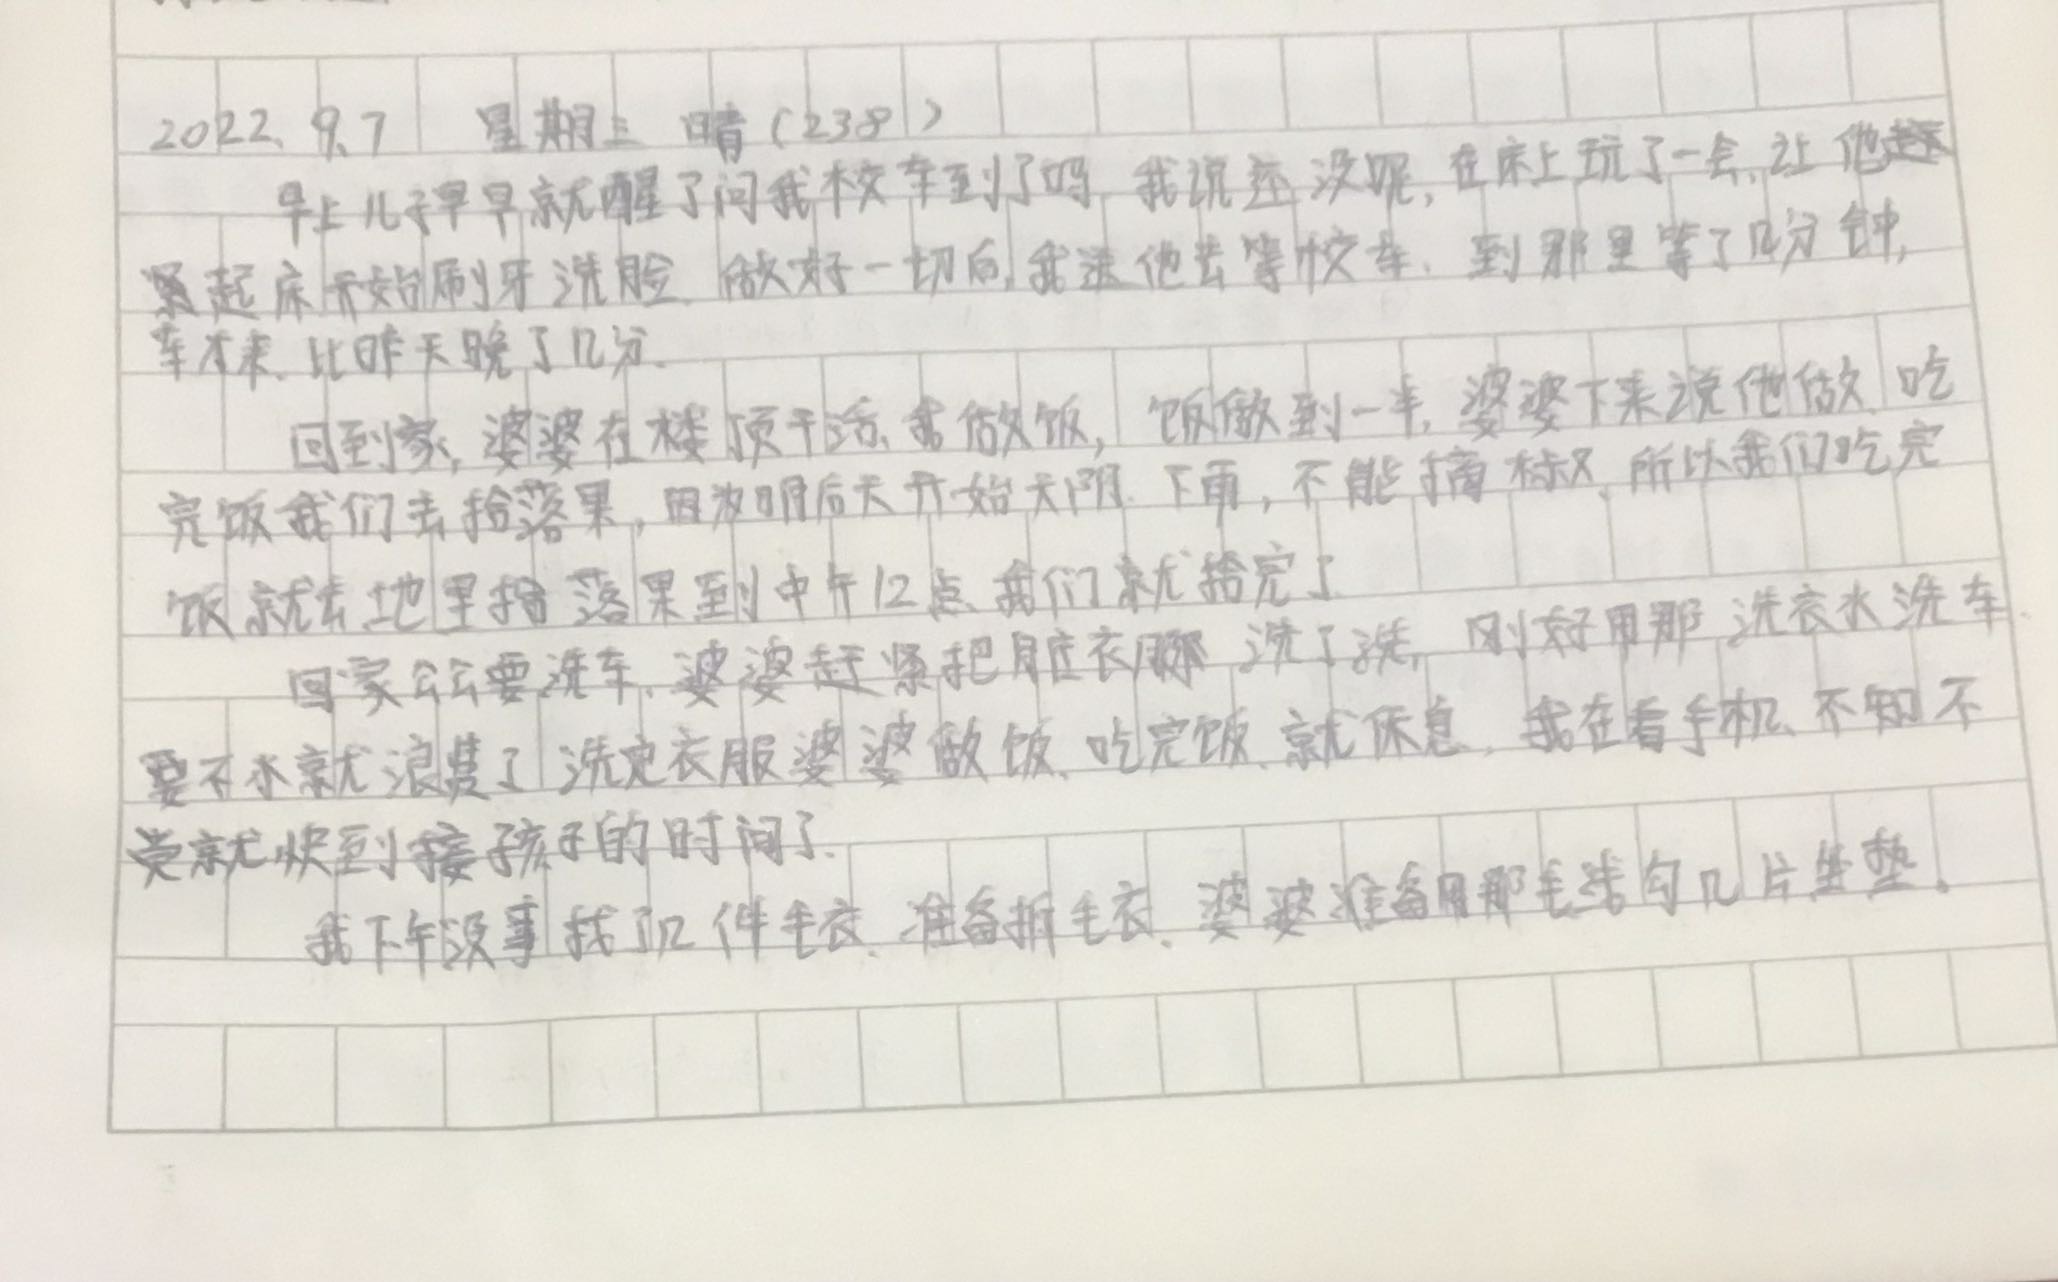 2022.9.7 星期三 晴(238)
早上儿子早早就醒了问我校车到了吗,我说还没呢,在床上玩了一会,让他赶
紧起床开始刷牙洗脸.做好一切后,我送他去等校车.到那里等了几分钟,
车才来.比昨天晚了几分.
回到家,婆婆在楼顶干活,我做饭,饭做到一半,婆婆下来说他做.吃
完饭我们去拾落果,因为明后天开始天阴.下雨,不能摘,所以我们吃完
饭就去地里拾落果到中午12点.我们就拾完了
回家公公要洗车.婆婆赶紧把脏衣服洗了洗,刚好用那洗衣水洗车.
要不水就浪费了洗完衣服婆婆做饭、吃完饭、就休息,我在看手机、不知不
觉就快到接孩子的时间了.
我下午没事找了几件毛衣.准备拆毛衣、婆婆准备用那毛线勾几片坐垫。